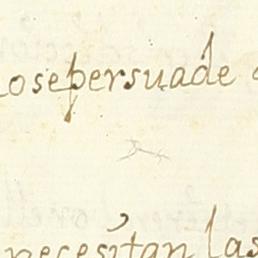 osepersuade
necesitan las